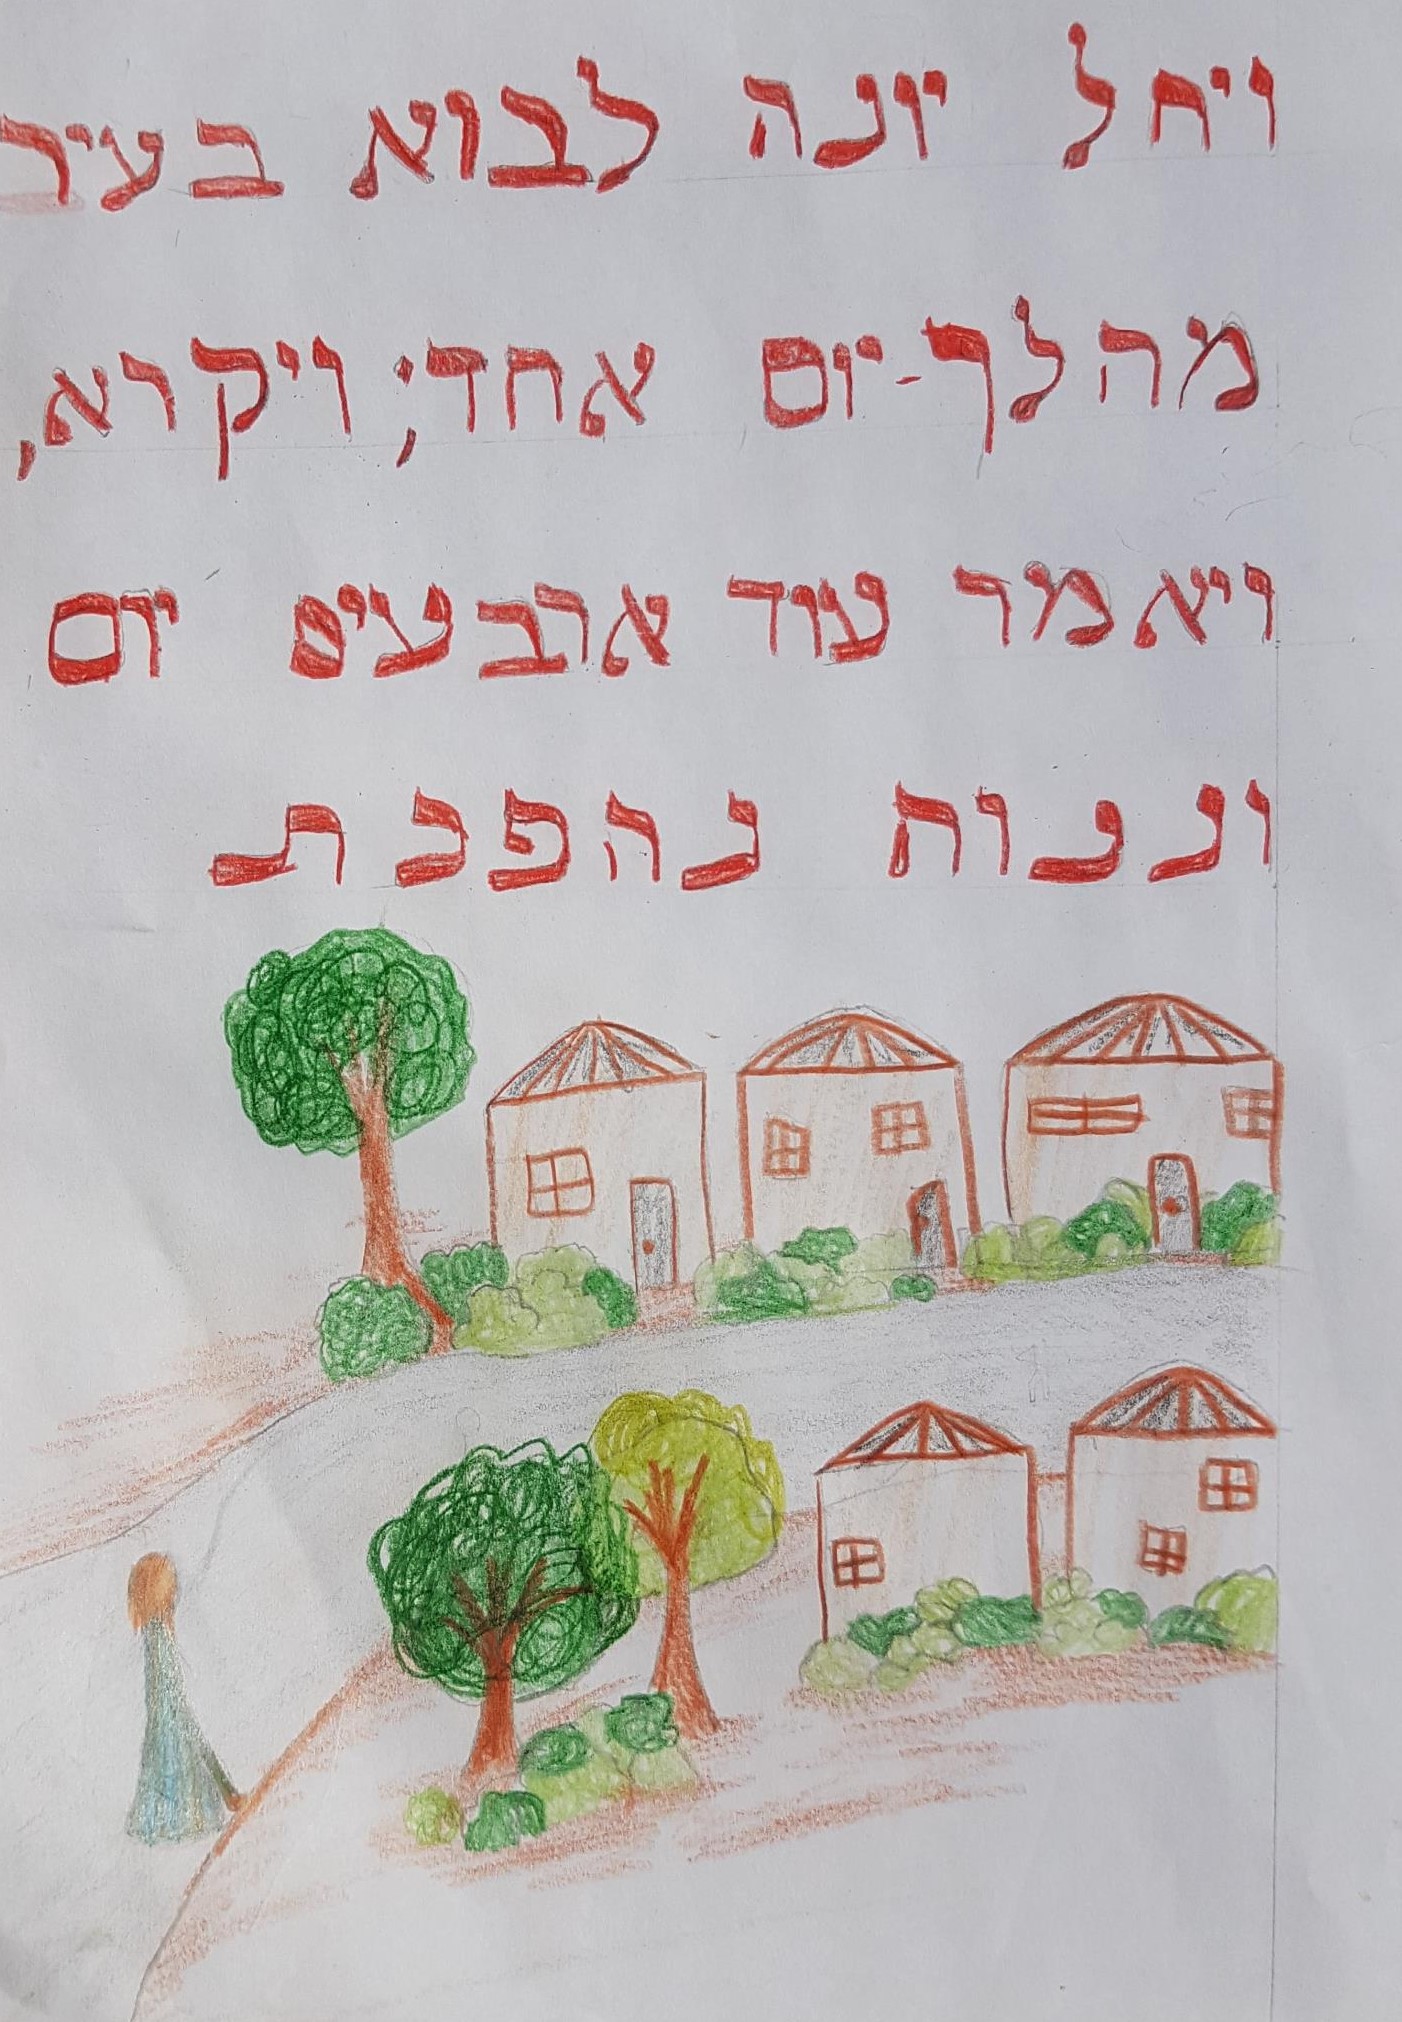 ויחל יונה לבוא בעיר
מהלך-יום אחד; ויקרא,
ויאמר עוד ארבעים יום
וננוה נהפכת